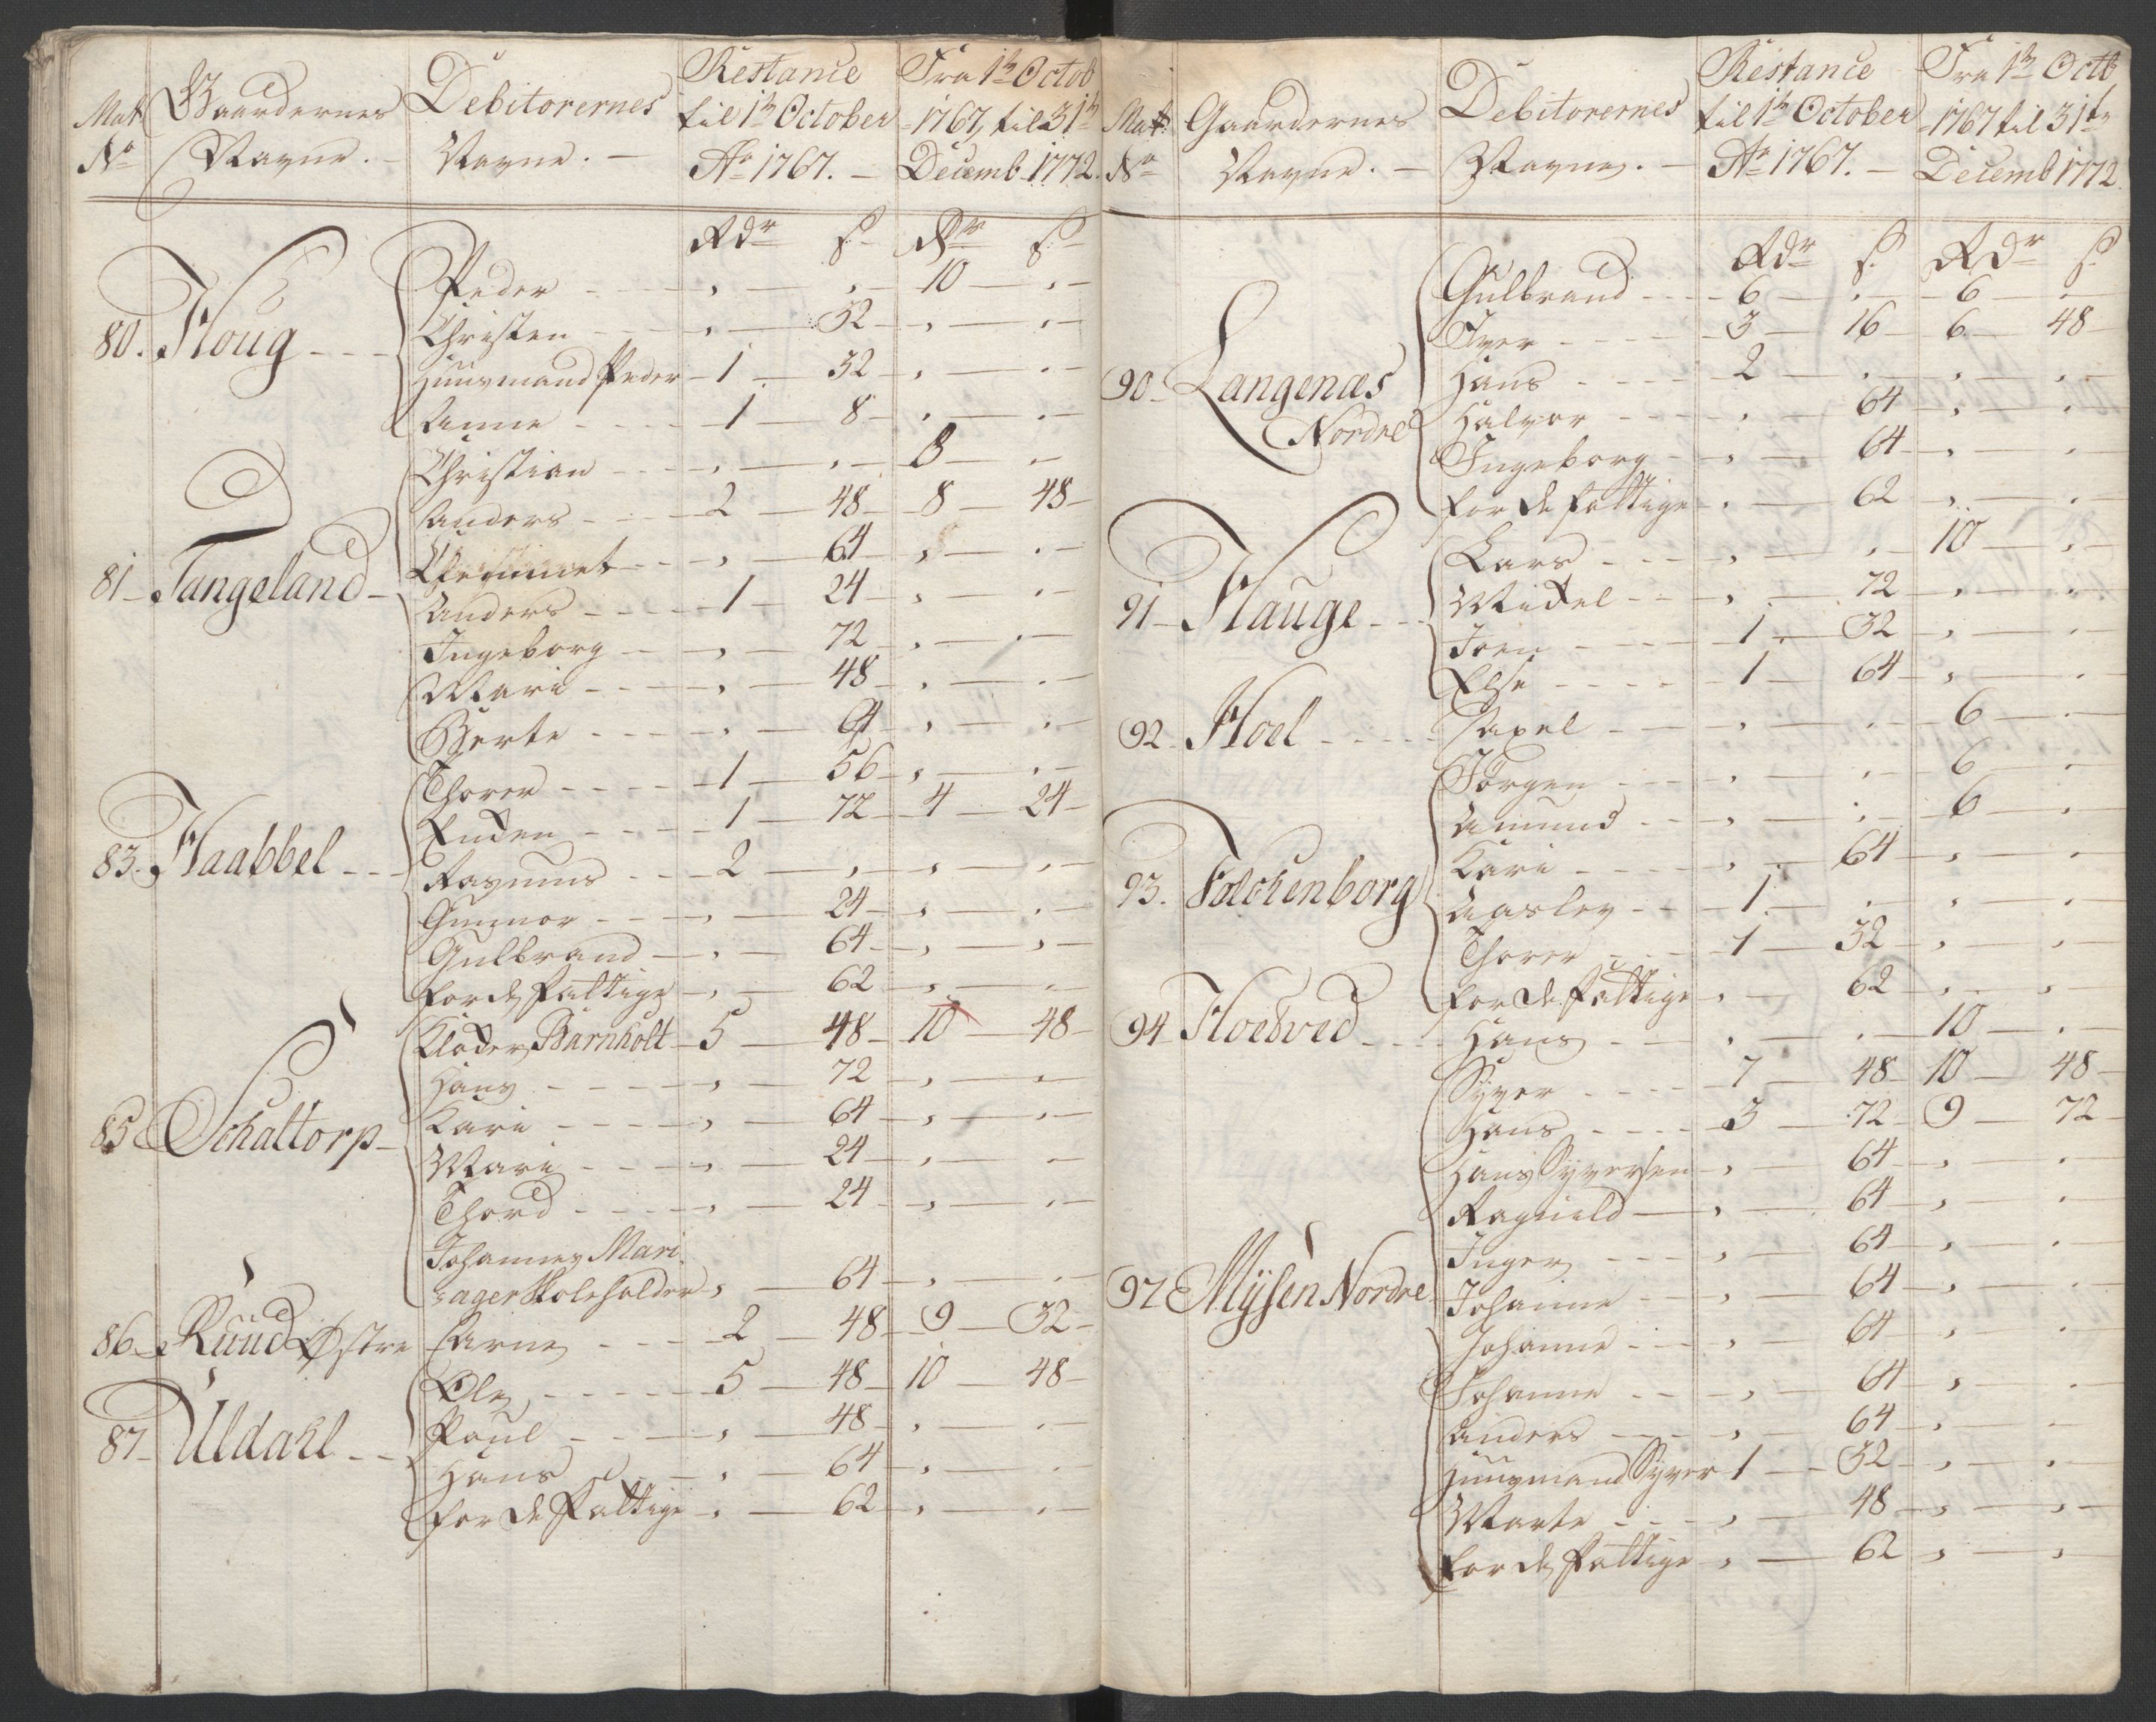 Mat No Gaardernes Navne. Debitorernes Navne. Restance til 1te October Ao 1767. Fra 1te Octob 1767, til 31te Decemb 1772.
Rdr s. Rdr s.
80. Houg Peder , , 10 ,
Christen , 32 , ,
Huusmand Peder 1 32 , ,
Anne 1 8 , ,
81 Tangeland Christian , , 8 ,
Anders 2 48 8 48
, 64 , ,
Anders 1 24 , ,
Ingeborg , 72 , ,
Mari , 48 , ,
Berte , 64 , ,
83. Haabbel Thorer 1 56 , ,
Enden 1 72 4 24
Rasmus 2 , , ,
Gunnor , 24 , ,
Gulbrand , 64 , ,
for de fattige , 62 , ,
85 Schaltorp Clader Barnholt 5 48 10 48
Hans , 72 , ,
Kari , 64 , ,
Mari , 24 , ,
Thord , 24 , ,
Johannes Mari
ager Skoleholder , 64 , ,
86 Ruud Østre Arne 2 48 9 32
87 Uldahl Ole 5 48 10 48
Poul , 48 , ,
Hans , 64 , ,
for de fattige , 62 , ,
Mat No Gaardernes Navne. Debitorernes Navne. Restance til 1te October Ao 1767. Fra 1te Octb 1767 til 31te Decemb 1772
Rdr s. Rdr s.
90 Langenæs Nordre Gulbrand 6 , 6 ,
Iver 3 16 6 48
Hans 2 , , ,
Halvor , 64 , ,
Ingeborg , 64 , ,
for de fattige , 62 , ,
91 Hauge Lars , , 10 ,
Mickel , 72 , ,
Joen 1 32 , ,
Else 1 64 , ,
92 Hoel Axel , , 6 ,
93. Folckenborg Jørgen , , 6 ,
Amund , , 6 ,
Kari , 64 , ,
Aslev 1 , , ,
Thorer 1 32 , ,
for de fattige , 62 , ,
94 Hoelved Hans , , 10 ,
97 Mÿsen Nordre Syver 7 48 10 48
Hans 3 72 9 72
Hans Syversen , 64 , ,
Ragnild , 64 , ,
Inger , 64 , ,
Johanne , 64 , ,
Johanne , 64 , ,
Johanne , 64 , ,
Anders , 64 , ,
Huusmand Syver 1 32 , ,
Marte , 48 , ,
for de fattige , 62 , ,